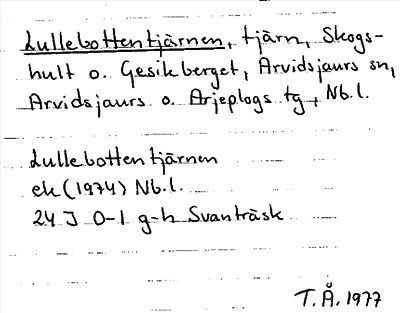 Lullebottentjärnen, tjärn, Skogs-
hult o. Gesikberget, Arvidsjaurs sn,
Arvidsjaurs o. Arjeplogs tg, Nb.l.
Lullebottentjärnen
ek (1974) Nb.l.
24 J 0-1 g-h Svanträsk
T.Å. 1977